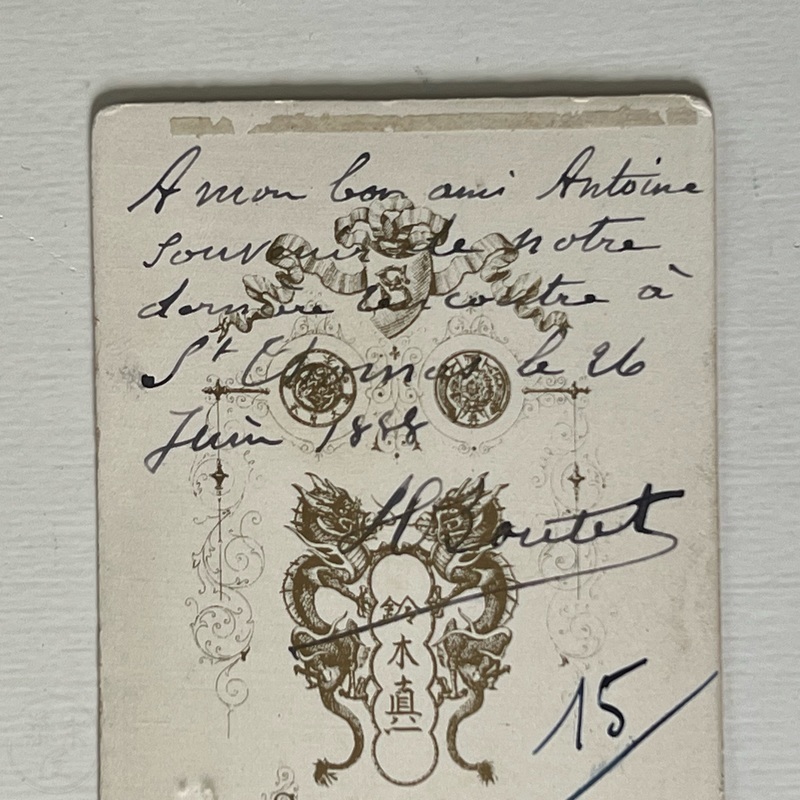 A mon bon ami Antoine
Souvenir de notre
dernière rencontre à
St Thomas le 26
Juin 1888
H Boutet
鈴木真一
15